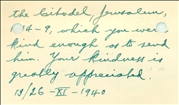 the Citadel Jerusalem,
14-9, which you were
kind enough as to send
him. Your kindness is
greatly appreciated.
13/26 - XI - 1940